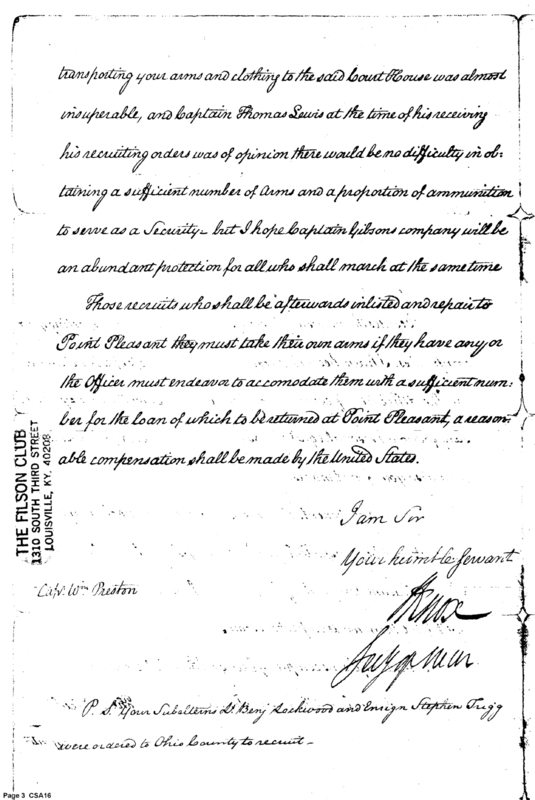 transporting your arms and clothing to the said Court House was almost
insuperable, and Captain Thomas Lewis at the time of his receiving
his recruiting orders was of opinion there would be no difficulty in ob:
taining a sufficient number of Arms and a proportion of ammunition
to serve as a Security - but I hope Captain Gibsons company will be
an abundant protection for all who shall march at the same time
Those recruits who shall be afterwards inlisted and repair to
Point Pleasant they must take their own arms if they have any, or
the Officer must endeavor to accomodate them with a sufficient num:
ber for the loan of which to be returned at Point Pleasant, a reason:
able compensation shall be made by the United States.
I am Sir
Your humble Servant
HKnox
Secy of War
Capt. Wm Preston
P.S. Your Subalterns Lt Benj Lockwood and Ensign Stephen Trigg
were ordered to Ohio County to recruit -
THE FILSON CLUB
1310 SOUTH THIRD STREET
LOUISVILLE, KY. 40208
Page 3 CSA16